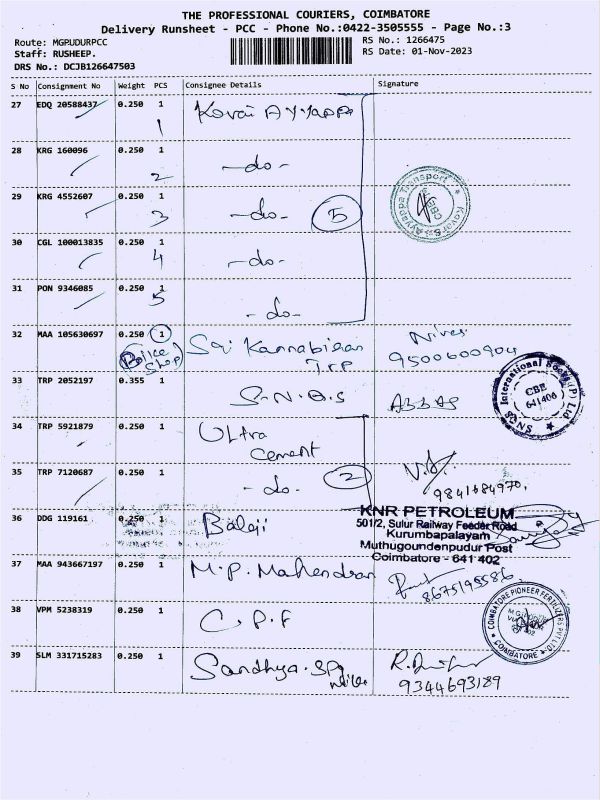 THE PROFESSIONAL COURIERS, COIMBATORE
Delivery Runsheet - PCC - Phone No.:0422-3505555 - Page No.:3
Route: MGPUDURPCC
Staff: RUSHEEP.
DRS No.: DCJB126647503
RS No.: 1266475
RS Date: 01-Nov-2023
S No Consignment No Weight PCS Consignee Details Signature
27 EDQ 20588437 0.250 1 Kovai Ayyappa
1
28 KRG 160096 0.250 1 -do-
2
29 KRG 4552607 0.250 1 -do- 5
3
Ayyappa Transport
CBE
30 CGL 100013835 0.250 1 -do-
4
31 PON 9346085 0.250 1 -do-
5
32 MAA 105630697 0.250 1 Sri Kannabiran
Trp
Shop
9500600904
33 TRP 2052197 0.355 1 S.N.Q.S
ABBAS
SNQS International Socks (P) Ltd
CBE
641406
34 TRP 5921879 0.250 1 Ultra
Cement
35 TRP 7120687 0.250 1 -do- 2
9841684970.
36 DDG 119161 0.250 1 Balaji
KNR PETROLEUM
501/2, Sulur Railway Feeder Road
Kurumbapalayam
Muthugoundenpudur Post
Coimbatore - 641 402
37 MAA 943667197 0.250 1 M.P. Mahendran
8675195586.
38 VPM 5238319 0.250 1 C.P.F
COIMBATORE PIONEER FERTILIZERS PVT LTD
COIMBATORE
39 SLM 331715283 0.250 1 Sandhya. Spg
mills
9344693189